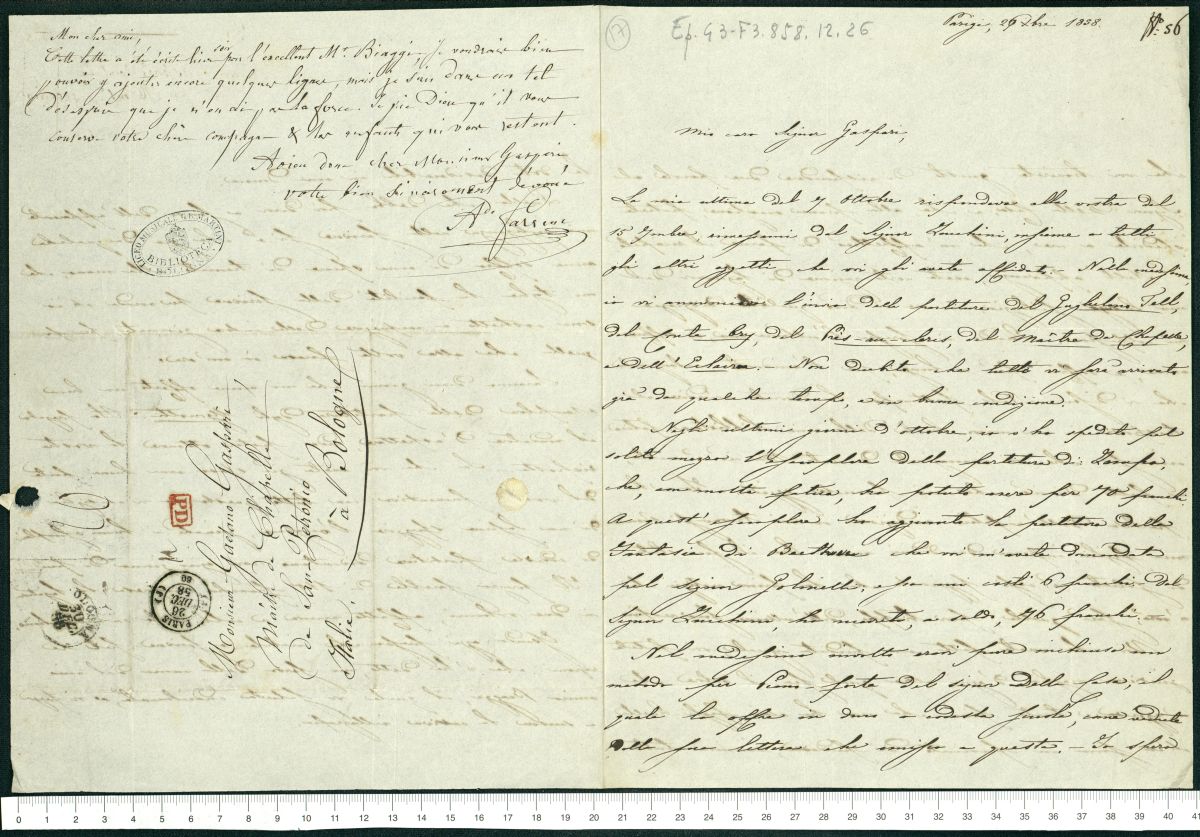 Mon cher ami,
Cette lettre a été écrite hier soir par l'excellent Mr. Biaggi; je voudrais bien
pouvoir y ajouter encore quelques lignes, mais je suis dans un tel
désespoir que je n'en ai pas la force. Je prie Dieu qu'il vous
conserve votre chère compagne & les enfants qui vous restent.
Adieu donc cher Monsieur Gaspari
votre bien sincèrement dévoué
Ade. Farrenc
LICEO MUSICALE G.B. MARTINI
BIBLIOTECA
PD
PARIS
26
DEC.
58
60
Monsieur Gaetano Gaspari
Maître de Chapelle
de San-Petronio
à Bologne
Italie.
17
Ep. G3-F3.858.12.26
Parigi, 26 Xbre 1858.
No. 56
Mio caro Signor Gaspari,
La mia ultima del 7 ottobre rispondeva alla vostra del
15 7mbre, del Signor Zucchini, insieme a tutti
gli altri oggetti che voi gli avete affidati. Nella medesima,
io vi annunciava l'invio delle partiture del Guglielmo Tell,
del Conte Ory, del Près-aux-clercs, del Maître de Chapelle,
e dell'Eclair. - Non dubito che tutto vi sarà arrivato
già da qualche tempo, e in buona condizione.
Negli ultimi giorni d'ottobre, io v'ho spedito pel
solito mezzo l'esemplare della partitura di Zampa,
che, con molta fatica, ho potuto avere per 70 franchi.
A quest'esemplare ho aggiunto la partitura della
Fantasia di Beethoven che voi m'avete domandata
pel signor Golinelli; essa mi costò 6 franchi. Dal
Signor Zucchini, ho ricevuto, a saldo, 76 franchi.
Nel medesimo involto era pure un
metodo per Piano-forte del signor Della Casa, il
quale lo offre in dono a codesta scuola, come vedrete
dalla sua lettera che a questa. - Io spero
0 1 2 3 4 5 6 7 8 9 10 11 12 13 14 15 16 17 18 19 20 21 22 23 24 25 26 27 28 29 30 31 32 33 34 35 36 37 38 39 40 41